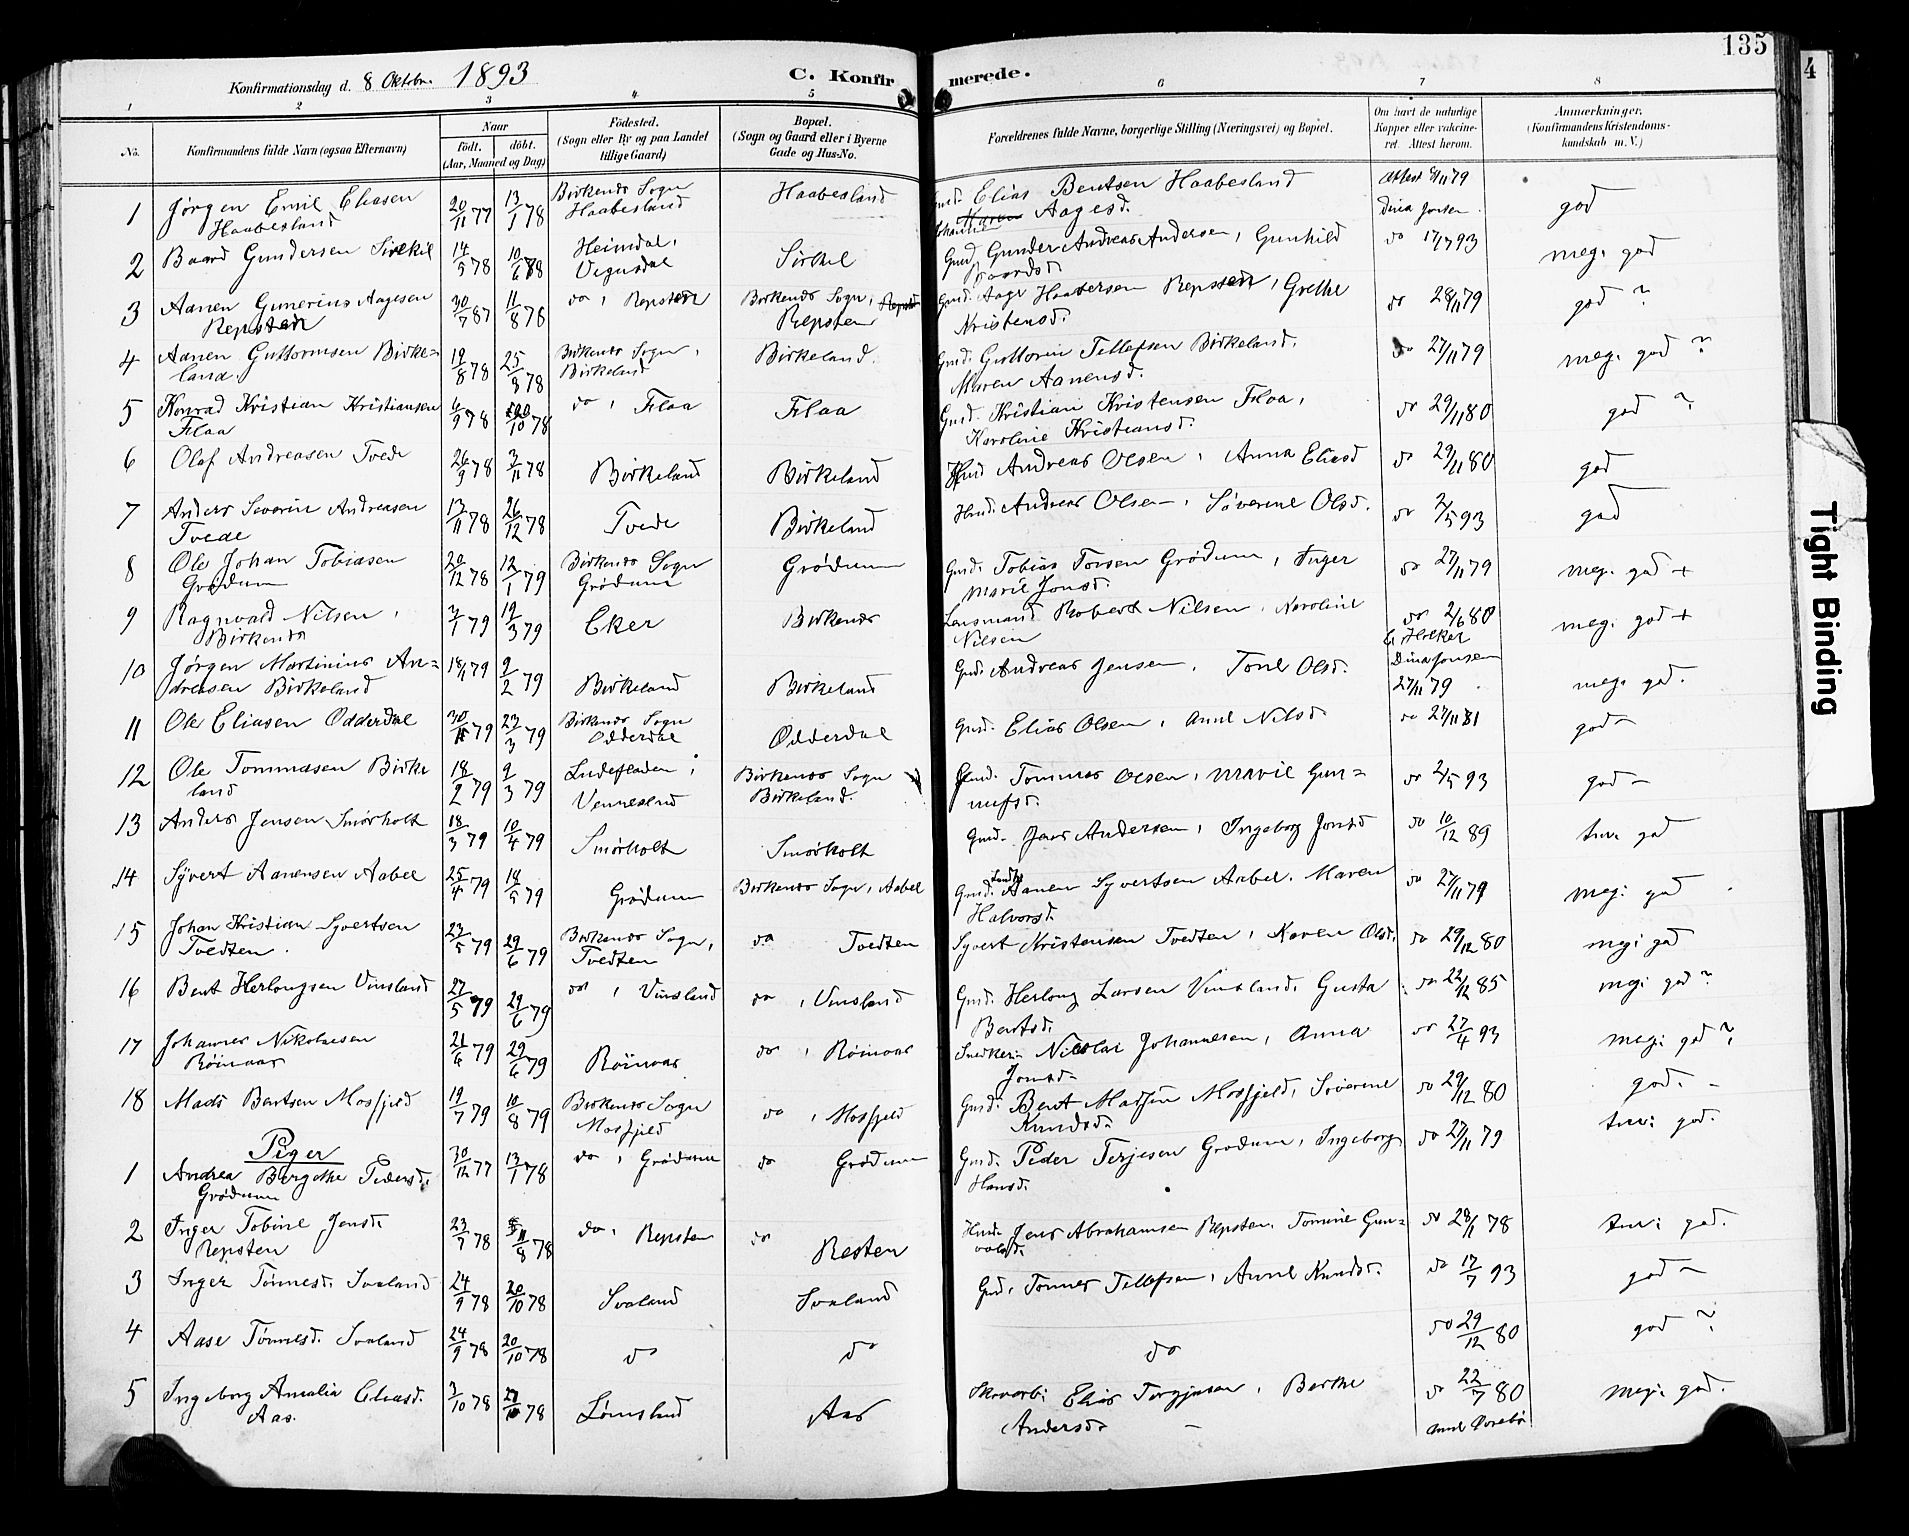 135
4
Konfirmationsdag d. 8 Oktbr. 1893
C. Konfirmerede.
1 2 3 4 5 6 7 8
No.
Konfirmandens fulde Navn (ogsaa Efternavn)
Naar
født. døbt.
(Aar, Maaned og Dag)
Fødested.
(Sogn eller By og paa Landet
tillige Gaard)
Bopæl.
(Sogn og Gaard eller i Byerne
Gade og Hus-No.
Forældrenes fulde Navne, borgerlige Stilling (Næringsvei) og Bopæl.
Om havt de naturlige
Kopper eller vakcine-
ret. Attest herom.
Anmærkninger.
(Konfirmandens Kristendoms-
kundskab m. V.)
1 Jørgen Emil Eliasen Haabesland 20/11 77 13/1 78 Birkenes Sogn Haabesland Haabesland Gmd. Elias Bentsen Haabesland Aagesd. Attest 79 Dina Jonsen god
2 Baard Gundersen Sirekil 14/5 78 10/6 78 Heimdal, Vegusdal Sirkel Gmd. Gunder Andreas Andersen, Gunhild Baardsd. do 17/7 93 meg. god
3 Aanen Gunerius Aagesen Repsten 30/7 87 11/8 78 do, Repsten Birkenes Sogn, Repsten Gmd. Aage Repsten, Grethe Kristensd. do 28/11 79 god ?
4 Aanen Guttormsen Birkeland. 19/8 78 25/8 78 Birkenes Sogn, Birkeland Birkeland. Gmd. Guttorm Tellefsen Birkeland. Maren Aanensd. do 27/11 79 meg. god ?
5 Konrad Kristian Kristiansen Flaa 6/9 78 20/10 78 do, Flaa Flaa Gmd. Kristian Kristensen Flaa, Karoline Kristiansd. do 29/11 80 god ?
6 Olaf Andreasen Tvede 26/9 78 3/11 78 Birkeland Birkeland Hmd Andreas Olsen, Anna Eliasd do 29/11 80 god
7 Anders Severin Andreasen Tvede 13/11 78 26/12 78 Tvede Birkeland Hmd. Andreas Olsen, Søverine Olsd. do 2/5 93 god
8 Ole Johan Tobiasen Grødum 20/12 78 12/1 79 Birkenes Sogn Grødum Grødum Gmd. Tobias Torsen Grødum, Inger Marie Jonsd. do 27/11 79 meg. god +
9 Ragnvald Nilsen, Birkenes 3/1 79 19/3 79 Eker Birkenes Lensmand Robert Nilsen, Karoline Nilsen do 2/6 80 meg. god +
10 Jørgen Martinius Andreasen Birkeland 18/1 79 9/2 79 Birkeland Birkeland Gmd. Andreas Jensen, Tone Olsd. Dina Jonsen 27/11 79 meg. god.
11 Ole Eliasen Odderdal 79 23/3 79 Birkenes Sogn Odderdal Odderdal Gmd. Elias Olsen, Anne Nilsd. do 27/11 81 god –
12 Ole Tommasen Birkeland 18/2 79 9/3 79 Vennesland Birkenes Sogn Birkeland. Gmd. Tommas Olsen, Marie Gunnufsd. do 2/5 93 god –
13 Anders Jensen Smørholt 18/3 79 10/4 79 Smørholt Smørholt Gmd. Jens Andersen, Ingeborg Jonsd do 10/12 89 tvi god
14 Syvert Aanensen Aabel 25/4 79 18/5 79 Grødum Birkenes Sogn, Aabel Gmd. Aanen Syvertsen Aabel. Maren Halvorsd. do 27/11 79 meg: god
15 Johan Kristian Syvertsen Tvedten. 23/5 79 29/6 79 Birkenes Sogn, Tvedten do Tvedten Syvert Kristensen Tvedten, Karen Olsd. do 29/12 80 meg: god
16 Bent Herlougsen Vinsland 27/5 79 29/6 79 do, Vinsland do, Vinsland Gmd. Herloug Larsen Vinsland, Gusta Bentsd. do 22/12 85 meg: god ?
17 Johannes Nikolaisen Røinaas 21/6 79 29/6 79 Røinaas do, Røinaas Snedker Nicolai Johannesen, Anna Jonsd. do 27/4 93 meg: god ?
18 Mads Bentsen Mosfjeld 19/7 79 10/8 79 Birkenes Sogn Mosfjeld do, Mosfjeld Gmd. Bent Madsen Mosfjeld, Søverine Knudsd. do 29/12 80 god. –
Piger
1 Andrea Bergithe Pedersd. Grødum 30/12 77 13/1 78 do, Grødum do Grødum Gmd. Peder Terjesen Grødum, Ingeborg Hansd. do 27/11 79 tvi: god.
2 Inger Tobine Jensd. Repsten 23/7 78 11/8 78 do, Repsten do Resten Hmd. Jens Abrahamsen Repsten, Tomine Gunvalsd. do 28/11 78 tvi: god.
3 Inger Tønnesd. Svaland 24/9 78 20/10 78 Svaland Svaland Gmd. Tønnes Tellefsen, Anne Knudsd. do 17/7 93 god –
4 Aase Tønnesd. Svaland 24/9 78 20/10 78 do do do do 29/12 80 god ?
5 Ingeborg Amalia Eliasd. Aas. 3/10 78 78 Lømsland Aas Skovarb: Elias Tergjesen, Berthe Andersd. do 22/7 80 meg: god.
Tight Binding